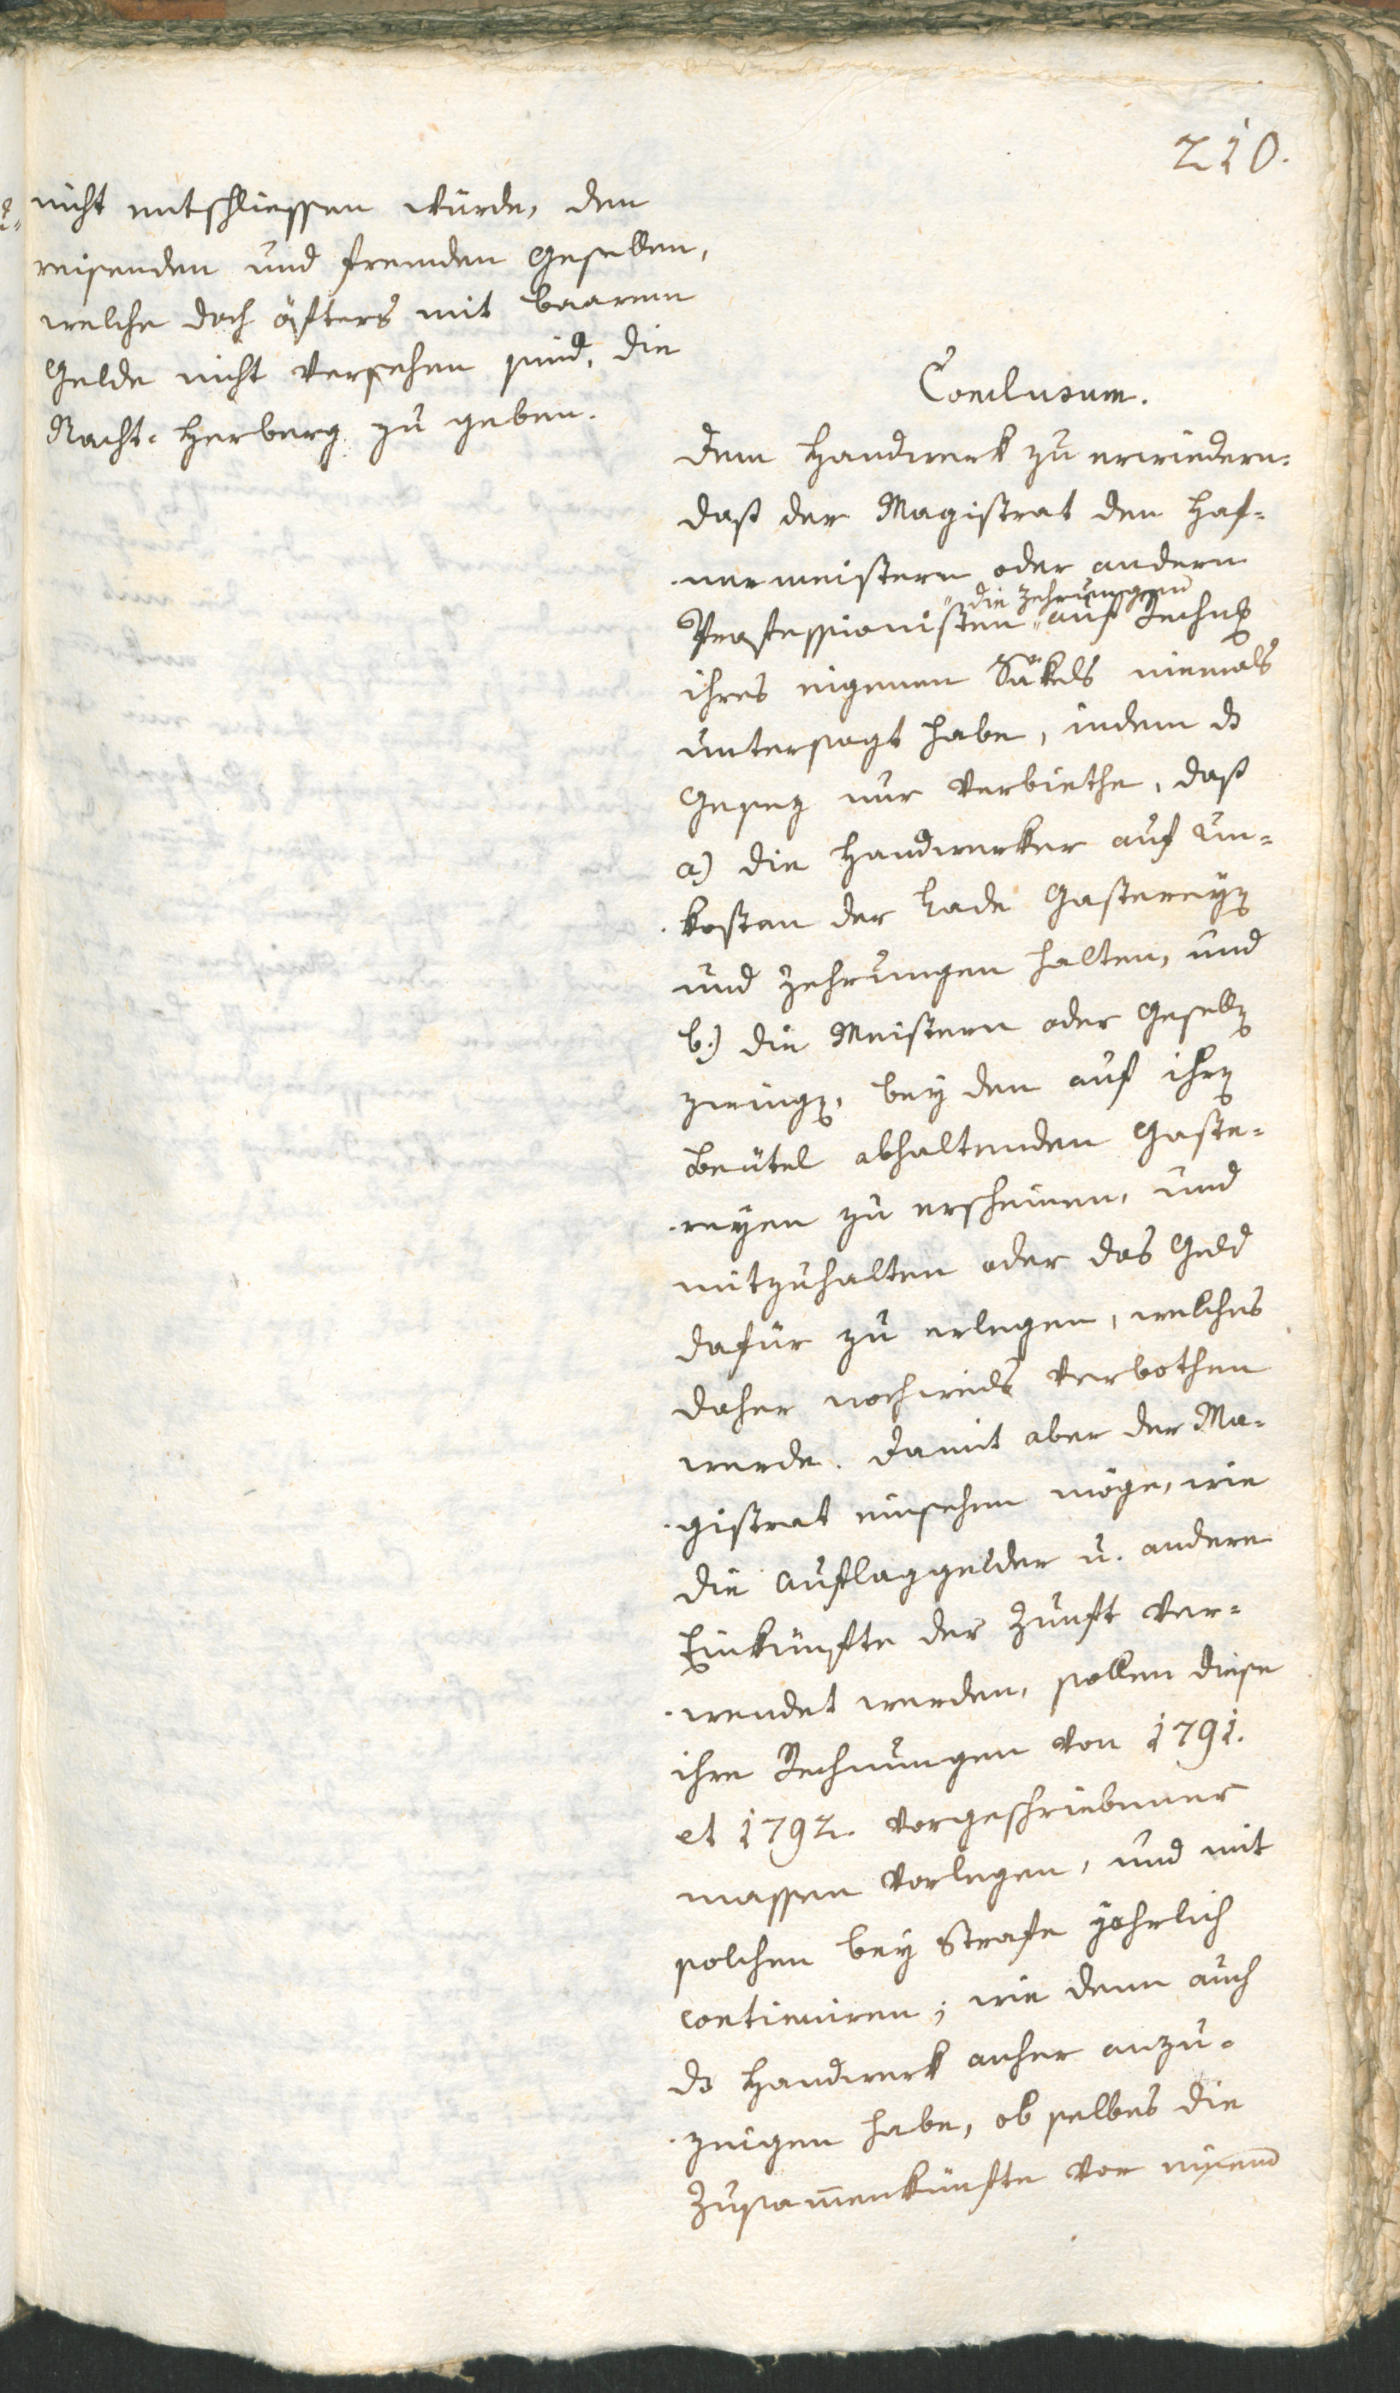 210.
nicht entschliessen würde, den
reisenden und fremden Gesellen,
welche doch öfters mit baarem
Gelde nicht versehen sind, die
Nacht-Herberg zu geben.
Conclusum.
Dem Handwerk zu erwiedern:
daß der Magistrat den Haf-
nermeistern oder andern
die Zehrungen
Professionisten auf Rechng
ihres eigenen Säkels niemals
untersagt habe, indem ds
Gesez nur verbiethe, daß
a) die Handwerker auf Un-
kosten der Lade Gastereyen
und Zehrungen halten, und
b.) die Meistern oder Gesellen
zwingen, bey den auf ihren
Beutel abhaltenden Gaste-
reyen zu erscheinen, und
mitzuhalten oder das Geld
dafür zu erlegen, welches
daher nochmals verbothen
werde. Damit aber der Ma-
gistrat einsehen möge, wie
die Auflaggelder u. andere
Einkünfte der Zunft ver-
wendet werden, sollen diese
ihre Rechnungen von 1791.
et 1792. vorgeschriebener
massen vorlegen, und mit
solchen bey Strafe jährlich
continuiren; wie denn auch
ds Handwerk anher anzu-
zeigen habe, ob selbes die
Zusam̅enkünfte vor